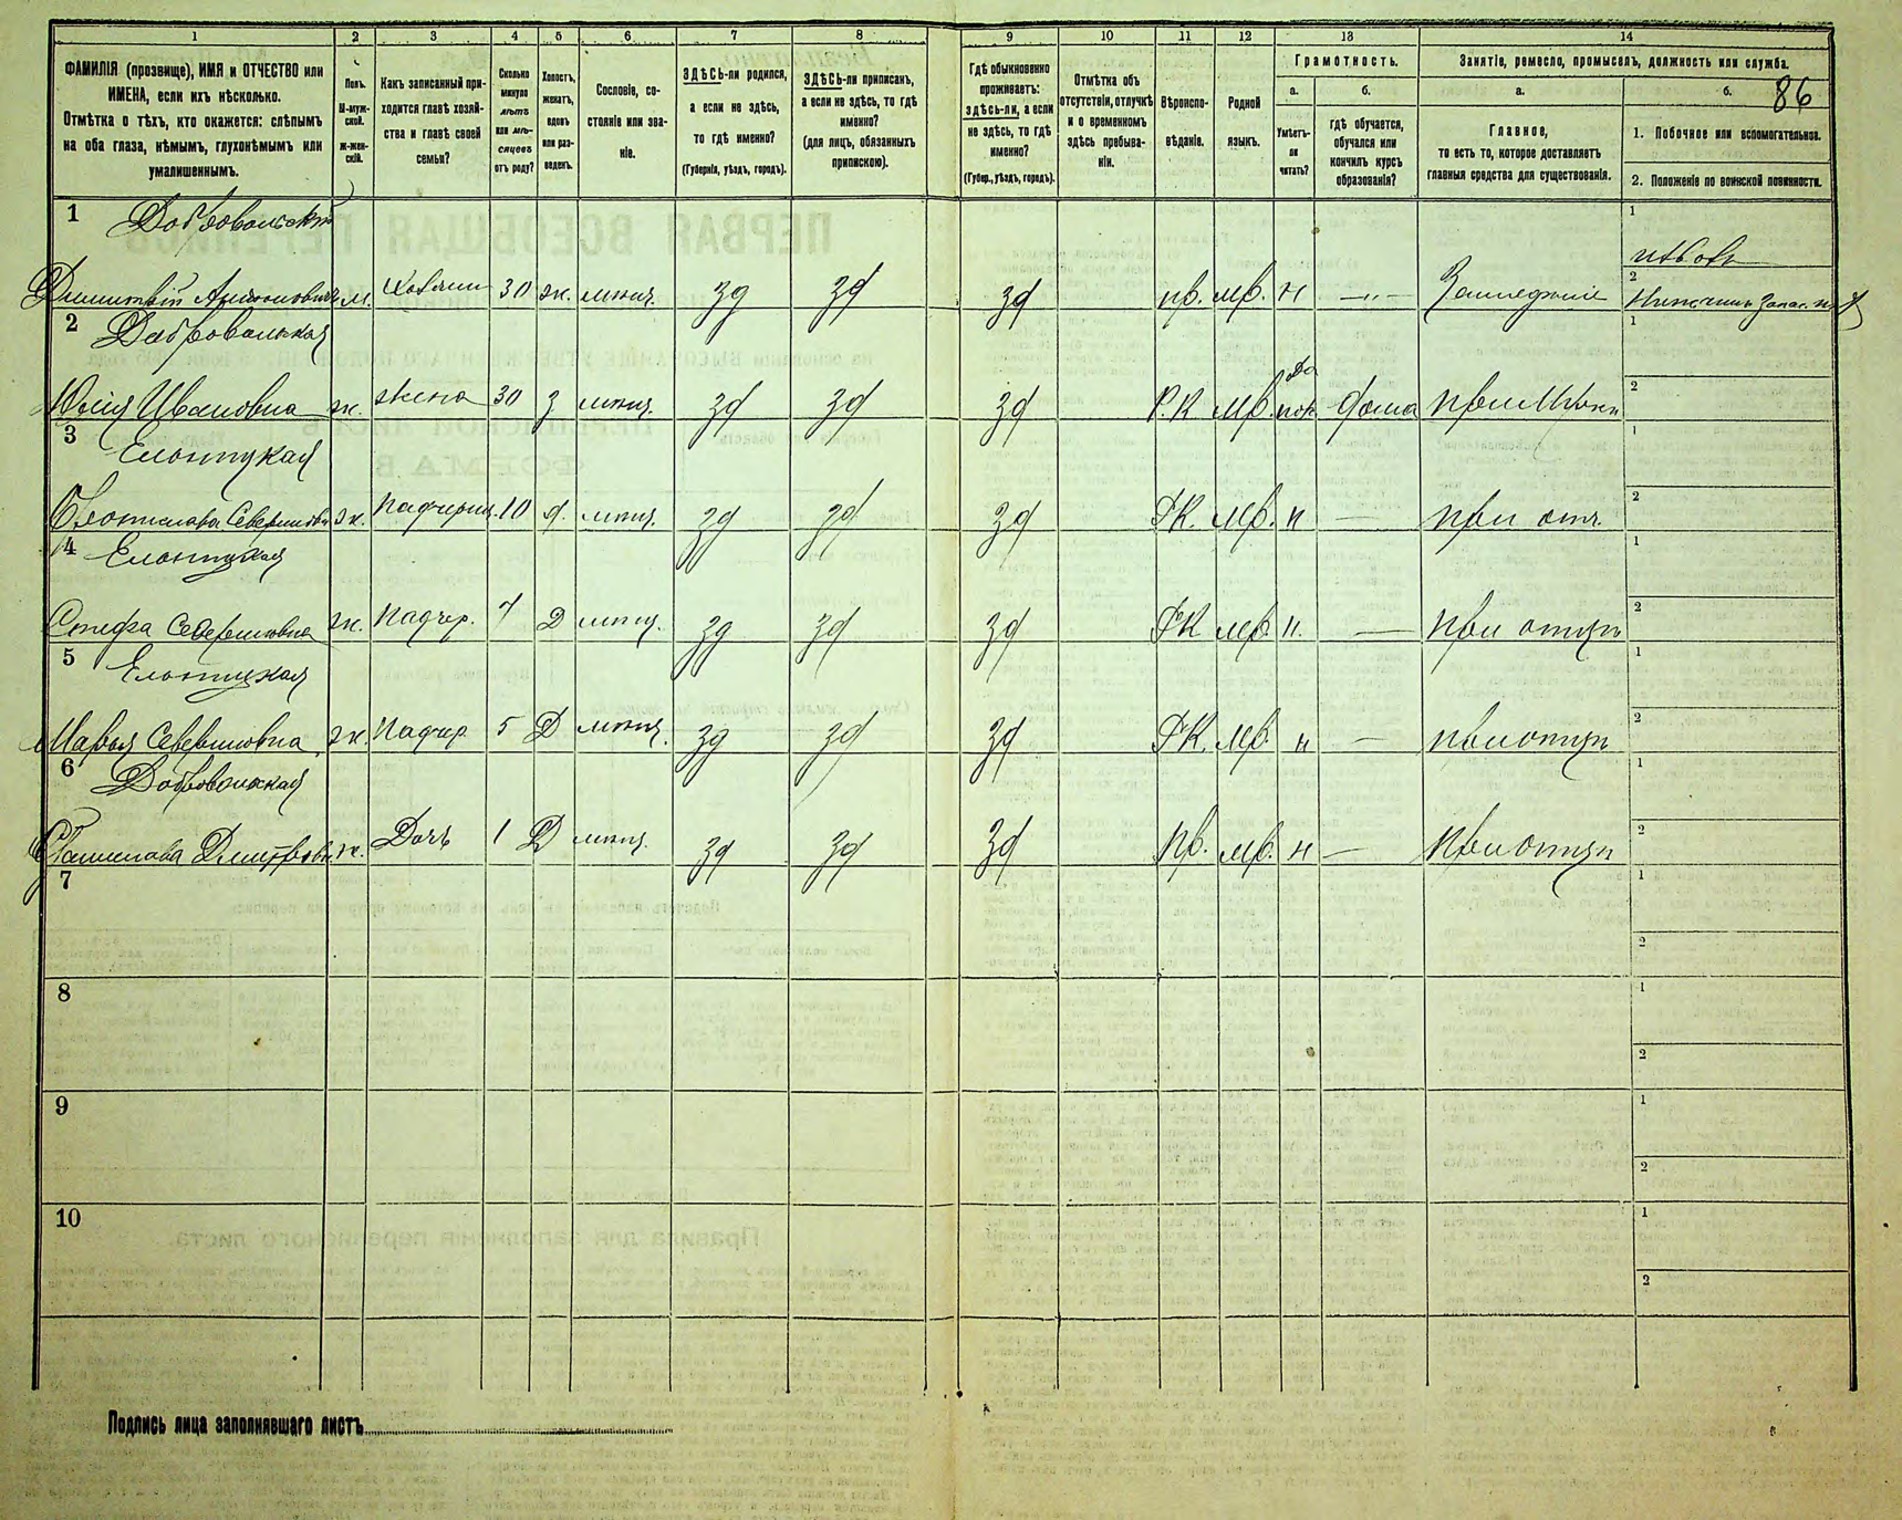 1 2 3 4 5 6 7 8 9 10 11 12 13 14
ФАМИЛІЯ (прозвище), ИМЯ и ОТЧЕСТВО или
ИМЕНА, если ихъ нѣсколько.
Отмѣтка о тѣхъ, кто окажется: слѣпымъ
на оба глаза, нѣмымъ, глухонѣмымъ или
умалишеннымъ.
Полъ.
М-муж-
ской.
Ж-жен-
скій.
Какъ записанный при-
ходится главѣ хозяй-
ства и главѣ своей
семьи?
Сколько
минуло
лѣтъ
или мѣ-
сяцевъ
отъ роду?
Холостъ,
женатъ,
вдовъ
или раз-
веденъ.
Сословіе, со-
стояніе или зва-
ніе.
ЗДѢСЬ-ли родился,
а если не здѣсь,
то гдѣ именно?
(Губернія, уѣздъ, городъ).
ЗДѢСЬ-ли приписанъ,
а если не здѣсь, то гдѣ
именно?
(для лицъ, обязанныхъ
припискою).
Гдѣ обыкновенно
проживаетъ:
здѣсь-ли, а если
не здѣсь, то гдѣ
именно?
(Губер., уѣздъ, городъ).
Отмѣтка объ
отсутствіи, отлучкѣ
и о временномъ
здѣсь пребыва-
ніи.
Вѣроиспо-
вѣданіе.
Родной
языкъ.
Грамотность.
а.
Умѣетъ-
ли
читать?
б.
гдѣ обучается,
обучался или
кончилъ курсъ
образованія?
Занятіе, ремесло, промыселъ, должность или служба.
а.
Главное,
то есть то, которое доставляетъ
главныя средства для существованія.
б.
86
1. Побочное или вспомогательное.
2. Положеніе по воинской повинности.
1 Добровольскій 1
Дмитрій Антоновичъ м. хозяин 30 ж. мѣщ. зд зд зд пр. мр. н —„— Земледѣліе 2
2 Добровольская 1
Юлія Ивановна ж. жена 30 з мѣщ. зд зд зд Р.К мр. да дома при 2
3 1
Севериновна ж. Падчериц. 10 д. мѣщ. зд зд зд РК. мр. н — при отч. 2
4 1
Стефа Севериновна ж. Падчер. 7 Д мѣщ. зд зд зд РК мр. н. — при отчи 2
5 1
Марья Севериновна ж. Падчер 5 Д мѣщ. зд зд зд РК. мр. н — при отчи 2
6 Добровольская 1
Дмитровна ж. Дочь 1 Д мѣщ. зд зд зд пр. мр. н — при отцѣ 2
7 1
2
8 1
2
9 1
2
10 1
2
Подпись лица заполнявшаго листъ